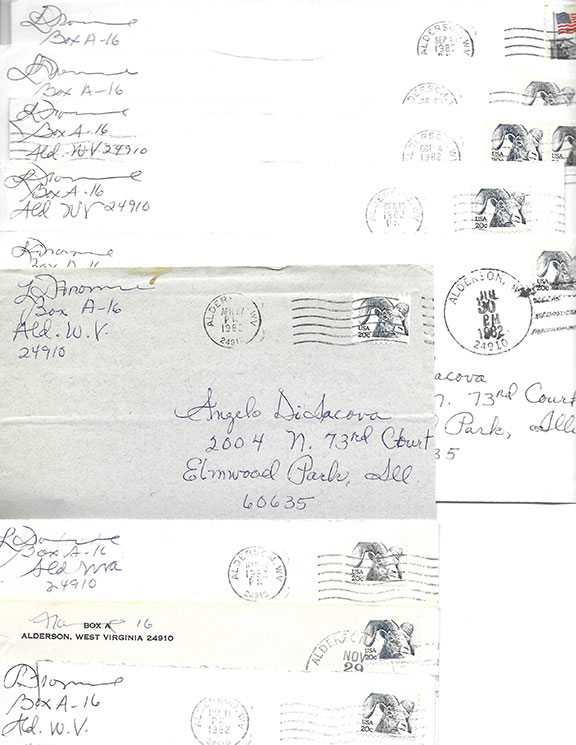 Box A-16
ALDERSON, WV
SEP
1982
Box A-16
Box A-16
Ald. W.V 24910
OCT 4
1982
USA
20c
Box A-16
Ald WV 24910
1982
USA
20c
USA
20c
ALDERSON, W
JUL
30
PM
1982
24910
L. Fromme
Box A-16
Ald. W.V.
24910
ALDERSON, WV
APR 27
PM
1982
24910
USA
20c
Angelo DiIacova
2004 N. 73rd Court
Elmwood Park, Ill
60635
acova
N. 73rd Court
Park, Illi
35
Box A-16
24910
ALDERSON, WV
24910
USA
20c
BOX A 16
ALDERSON, WEST VIRGINIA 24910
NOV
29
USA
20c
Box A-16
Ald. W.V.
1982
USA
20c